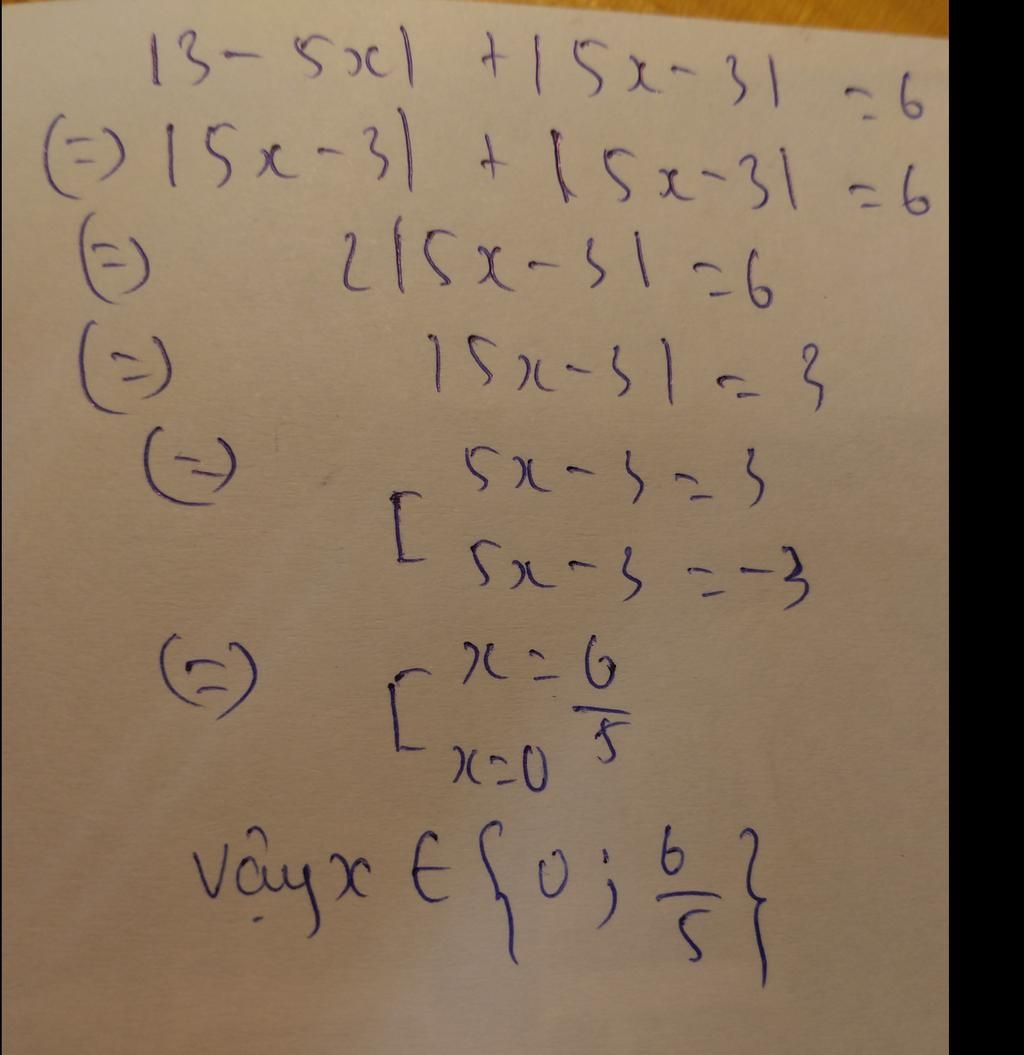 |3 - 5x| + |5x - 3| = 6
(=) |5x - 3| + |5x - 3| = 6
(=) 2|5x - 3| = 6
(=) |5x - 3| = 3
(=) [ 5x - 3 = 3
5x - 3 = -3
(=) [ x = 6/5
x = 0
Vậy x ∈ {0 ; 6/5}